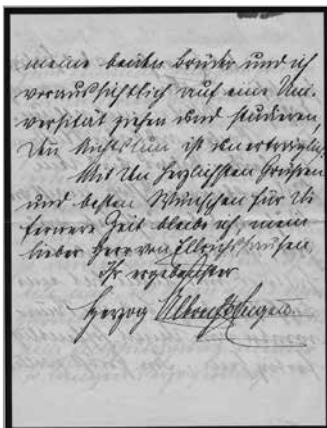 meine beiden Brüder und ich
voraussichtlich auf eine Uni-
versität ziehen und studieren,
Das Nichtstun ist unerträglich.
Mit den herzlichsten Grüßen
und besten Wünschen für die
fernere Zeit bleibe ich, mein
lieber Herr von Ellrichshausen
Ihr ergebenster
Herzog Albrecht Eugen.